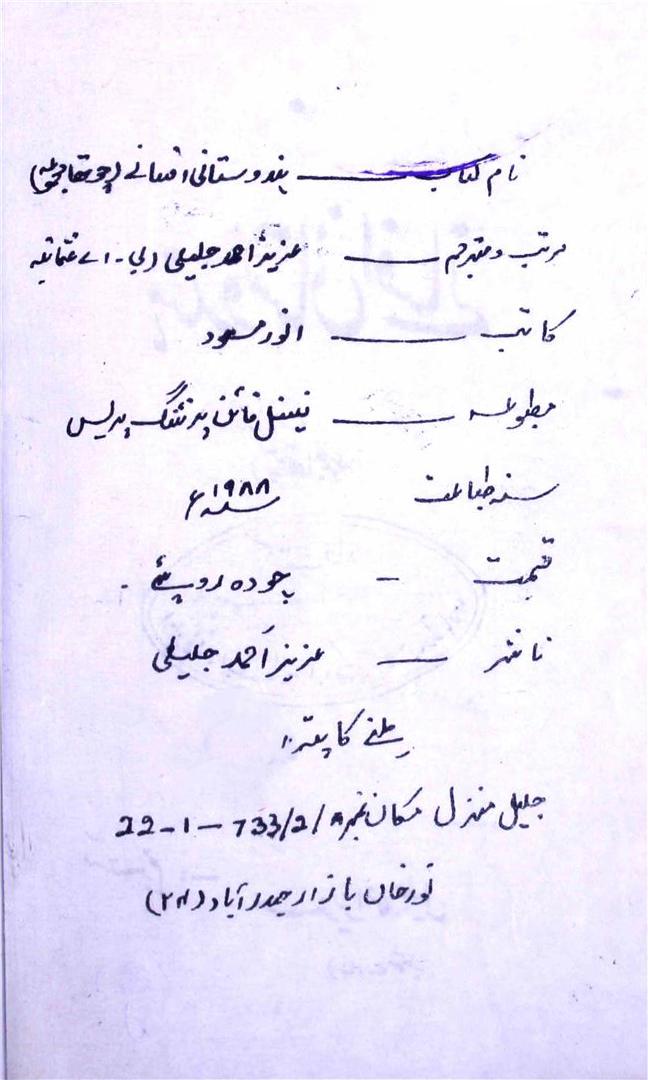 نام کتاب — ہندوستانی افسانے (چوتھا مجموعہ)
مرتب و مترجم — عزیز احمد جلیلی (بی۔اے عثمانیہ
کاتب — انور مسعود
مطبوعہ — نیشنل فائن پرنٹنگ پریس
سنہ طباعت ۱۹۸۸ء
قیمت — چودہ روپئے ۔
ناشر — عزیز احمد جلیلی
ملنے کا پتہ:
جلیل منزل مکان نمبر 22-1-733/2/A
نور خاں بازار حیدرآباد (۲۴)